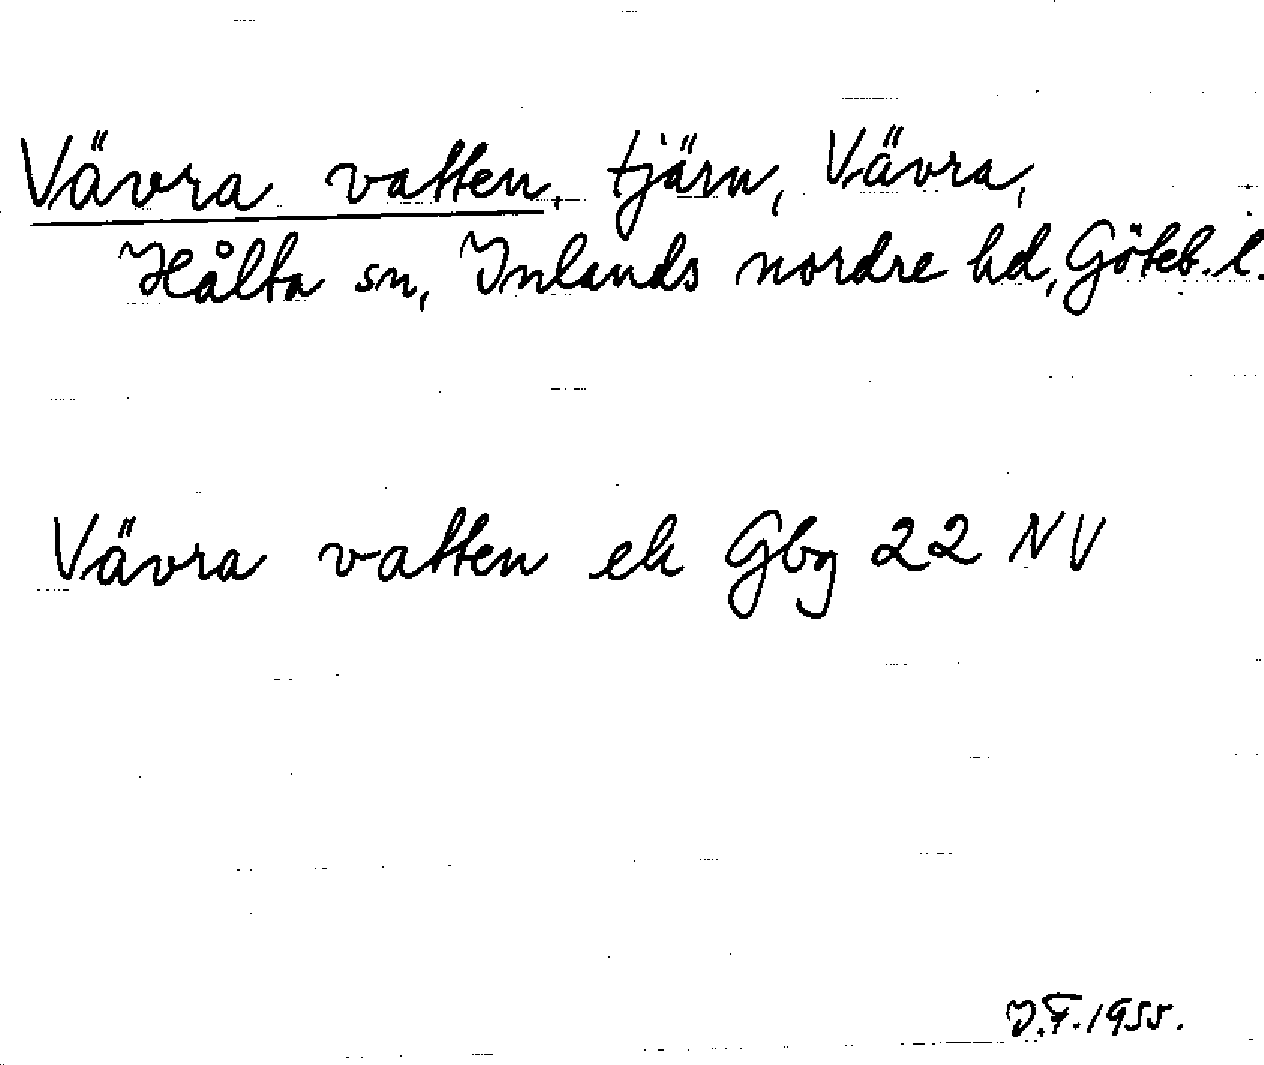 Vävra vatten, tjärn, Vävra,
Hålta sn, Inlands nordre hd, Göteb. l.
Vävra vatten ek Gbg 22 NV
J.F. 1955.